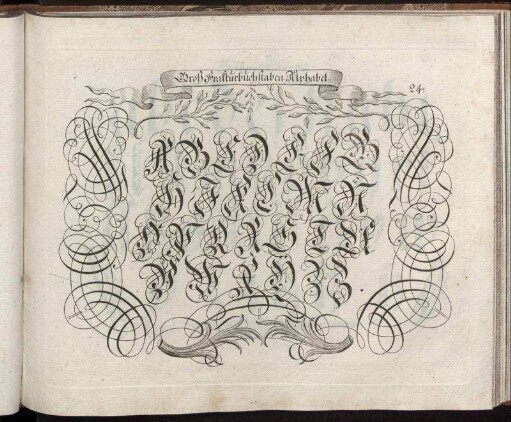 Groß Frakturbuchstaben Alphabet
24.
A B C D E F G
H I K L M N
O P Q R S T U
V W X Y Z